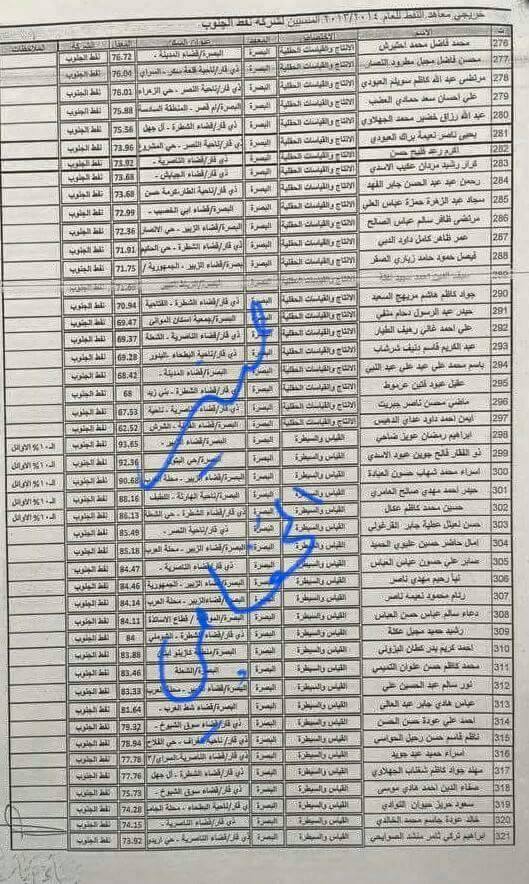 خريجي معاهد النفط للعام ٢٠١٣/٢٠١٤ المنسبين لشركة نفط الجنوب
ت الاختصاص المعهد عنوان السكن المعدل الشركة الملاحظات
276 محمد فاضل محمد الانتاج والقياسات الحقلية البصرة البصرة/قضاء المدينة - 76.72 نفط الجنوب
277 محسن فاضل مجبل مطرود النصار الانتاج والقياسات الحقلية البصرة ذي قار/ناحية قلعة سكر - السراي 76.04 نفط الجنوب
278 مرتضى عبد الله كاظم سويلم العبودي الانتاج والقياسات الحقلية البصرة ذي قار/ناحية النصر - حي الزهراء 76.01 نفط الجنوب
279 علي احسان سعد حمادي العضب الانتاج والقياسات الحقلية البصرة البصرة/ام قصر - المنطقة السادسة 75.88 نفط الجنوب
280 عبد الله رزاق خضير محمد الجهلاوي الانتاج والقياسات الحقلية البصرة ذي قار/قضاء الشطرة - ال جهل 75.56 نفط الجنوب
281 يحيى ناصر نعيمة براك العبودي الانتاج والقياسات الحقلية البصرة ذي قار/ناحية النصر - حي 73.96 نفط الجنوب
282 اكرم رعد فليح حسن الانتاج والقياسات الحقلية البصرة ذي قار/قضاء الناصرية - 73.92 نفط الجنوب
283 كرار رشيد مردان عكيب الاسدي الانتاج والقياسات الحقلية البصرة ذي قار/قضاء الجبايش - 73.68 نفط الجنوب
284 رحمن عبد عبد الحسن جابر الفهد الانتاج والقياسات الحقلية البصرة ذي قار/ناحية الطار/كرمة حسن 73.68 نفط الجنوب
285 سجاد عبد الزهرة حمزة عباس العلي الانتاج والقياسات الحقلية البصرة البصرة/قضاء ابي الخصيب - 72.99 نفط الجنوب
286 مرتضى ظافر سالم عباس الصالح الانتاج والقياسات الحقلية البصرة البصرة/قضاء الزبير - حي الانصار 72.36 نفط الجنوب
287 عمر ظاهر كامل داود الدبي الانتاج والقياسات الحقلية البصرة ذي قار/قضاء الشطرة - حي الحكيم 71.91 نفط الجنوب
288 فيصل حمود حامد زياري الصقر الانتاج والقياسات الحقلية البصرة البصرة/قضاء الزبير - الجمهورية 71.75 نفط الجنوب
289
290 جواد كاظم هاشم مريهج السعيد الانتاج والقياسات الحقلية البصرة ذي قار/قضاء الشطرة - 70.94 نفط الجنوب
291 حيدر عبد الرسول دحام متقي الانتاج والقياسات الحقلية البصرة البصرة/جمعية اسكان الموانئ 69.47 نفط الجنوب
292 علي احمد غالي رهيف الطيار الانتاج والقياسات الحقلية البصرة ذي قار/قضاء الناصرية - الشعلة 69.37 نفط الجنوب
293 عبد الكريم قاسم دنيف شرشاب الانتاج والقياسات الحقلية البصرة ذي قار/ناحية البطحاء - 69.28 نفط الجنوب
294 باسم محمد علي عبد علي عبد النبي الانتاج والقياسات الحقلية البصرة البصرة/قضاء المدينة - 68.42 نفط الجنوب
295 عقيل عبود عرموط الانتاج والقياسات الحقلية البصرة ذي قار/قضاء الشطرة - بني زيد 68 نفط الجنوب
296 ماضي محسن ناصر جبريت الانتاج والقياسات الحقلية البصرة ذي قار/قضاء الناصرية - ناحية 67.53 نفط الجنوب
297 ايمن احمد داود عداي الدهيس الانتاج والقياسات الحقلية البصرة البصرة/قضاء القرنة - الشرش 62.52 نفط الجنوب
298 ابراهيم رمضان عويز ضاحي القياس والسيطرة البصرة البصرة/قضاء الزبير - 93.65 نفط الجنوب الـ ١٠% الاوائل
299 ذو الفقار فالح جوين عبود الاسدي القياس والسيطرة البصرة البصرة/حي 92.36 نفط الجنوب الـ ١٠% الاوائل
300 اسراء محمد شهاب حسون العبادة القياس والسيطرة البصرة البصرة/قضاء الزبير - محلة 90.68 نفط الجنوب الـ ١٠% الاوائل
301 حيدر احمد مهدي صالح العامري القياس والسيطرة البصرة البصرة/ناحية الهارثة - 88.16 نفط الجنوب الـ ١٠% الاوائل
302 حسين محمد كاظم عكال القياس والسيطرة البصرة ذي قار/قضاء الشطرة - حي الشعلة 86.13 نفط الجنوب الـ ١٠% الاوائل
303 حسن نعيثل عطية جابر القرغولي القياس والسيطرة البصرة ذي قار/ناحية النصر - 85.49 نفط الجنوب
304 امال حاضر حسين عليوي الحميد القياس والسيطرة البصرة البصرة/قضاء الزبير - محلة العرب 85.18 نفط الجنوب
305 صابر علي حسون عباس القياس والسيطرة البصرة ذي قار/قضاء الناصرية - 84.47 نفط الجنوب
306 نبأ رحيم مهدي ناصر القياس والسيطرة البصرة البصرة/قضاء الزبير - الجمهورية 84.46 نفط الجنوب
307 رنام محمود نعيمة ناصر القياس والسيطرة البصرة البصرة/قضاء الزبير - محلة العرب 84.14 نفط الجنوب
308 دعاء سالم عباس حسن العباس القياس والسيطرة البصرة قطاع الاساتذة 84.11 نفط الجنوب
309 رشيد حميد مجبل عكلة القياس والسيطرة البصرة ذي قار/قضاء الشطرة - الشوملي 84 نفط الجنوب
310 احمد كريم بدر كطان البزوني القياس والسيطرة البصرة 83.88 نفط الجنوب
311 محمد كاظم حسن علوان التميمي القياس والسيطرة البصرة البصرة/الشعلة 83.46 نفط الجنوب
312 نور سالم عبد الحسين علي القياس والسيطرة البصرة البصرة/قضاء الزبير - محلة العرب 83.33 نفط الجنوب
313 عباس هادي جابر عبد العالي القياس والسيطرة البصرة البصرة/قضاء شط العرب - 81.64 نفط الجنوب
314 احمد علي عودة حسن الحسن القياس والسيطرة البصرة ذي قار/قضاء سوق الشيوخ - 79.32 نفط الجنوب
315 ناظم قاسم حسن رحيل الحواسي القياس والسيطرة البصرة ذي قار/ناحية الغراف - حي الفلاح 78.94 نفط الجنوب
316 اسراء حميد عبد جويد القياس والسيطرة البصرة ذي قار/قضاء الناصرية-السراي/٣ 77.78 نفط الجنوب
317 مهند جواد كاظم شغناب الجهلاوي القياس والسيطرة البصرة ذي قار/قضاء الشطرة - ال جهل 77.76 نفط الجنوب
318 صفاء الدين احمد هادي موسى القياس والسيطرة البصرة ذي قار/قضاء سوق الشيوخ - 75.73 نفط الجنوب
319 سعود حريز حيوان القياس والسيطرة البصرة ذي قار/ناحية البطحاء - محلة 74.28 نفط الجنوب
320 خالد عودة جاسم محمد الخالدي القياس والسيطرة البصرة ذي قار/قضاء الناصرية - 74.15 نفط الجنوب
321 ابراهيم تركي ثامر منشد الصويلحي القياس والسيطرة البصرة ذي قار/قضاء الناصرية - حي اريدو 73.92 نفط الجنوب